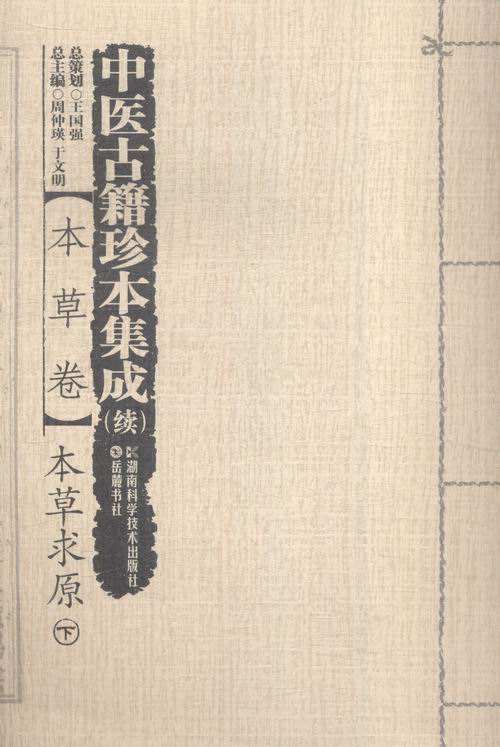 中医古籍珍本集成(续)
湖南科学技术出版社
岳麓书社
总策划○王国强
总主编○周仲瑛 于文明
【本草卷】
本草求原
下